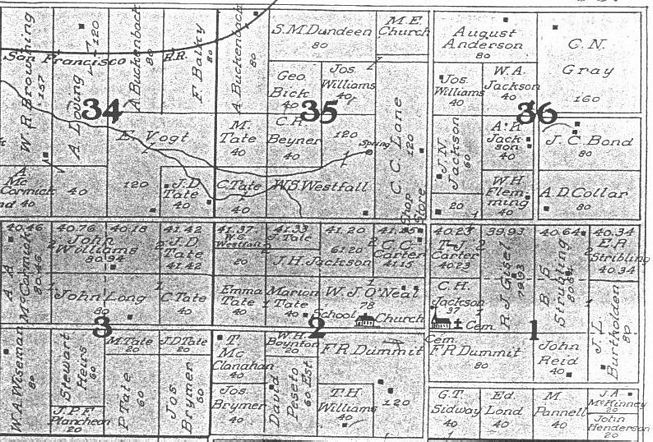 W.R. Browning
157
San Francisco
R.R.
120
A Buckenback
80
F. Balty
80
A. Buckenback
80
S.M. Dundeen
80
M.E.
Church
August
Anderson
80
C.N.
Gray
160
34
35
36
Geo.
Bick
40
Jos.
Williams
40
Jos
Williams
40
W.A.
Jackson
40
E. Vogt
120
M.
Tate
40
C.R.
Beyner
40
120
Spring
C.C. Lane
120
J.N.
Jackson
60
20
A.R.
Jack
son
40
J.C. Bond
80
A.
Mc
Cormick
40
40
J.D.
Tate
40
C. Tate
40
W.S. Westfall
Shop
Store
W.H.
Flem
ming
40
A.D. Collar
80
40.46
40.76
40.18
41.42
41.37
41.33
41.20
41.15
40.23
39.93
40.64
40.34
McCormick
80.46
John
Williams
80.94
J.D.
Tate
41.42
20
J.H. Jackson
61.20
C.C.
Carter
41.15
T.J.
Carter
40.23
R.J. Gisel
79.93
B.F.
Stribling
E.R.
Stribling
40.34
John Long
80
C. Tate
40
Emma
Tate
40
Marion
Tate
40
W.J. O'Neal
78
School
Church
C.H.
Jackson
37
Cem.
Cem.
3
2
1
W.A. Wiseman
80
Stewart
Heirs
60
J.P.F.
Plancheon
20
M. Tate
20
P. Tate
60
J.D. Tate
20
Jos
Brymer
60
T.
Mc
Clanahan
40
Jos.
Brymer
40
W.H.
Boynton
20
David
Peseto
60 Est.
F.R. Dummit
T.H.
Williams
40
120
F.R. Dummit
80
John
Reid
40
J.L.
Bartholden
80
G.T.
Sidway
40
Ed.
Lond
40
M.
Pannell
40
J.A.
McKinney
20
John
Henderson
20